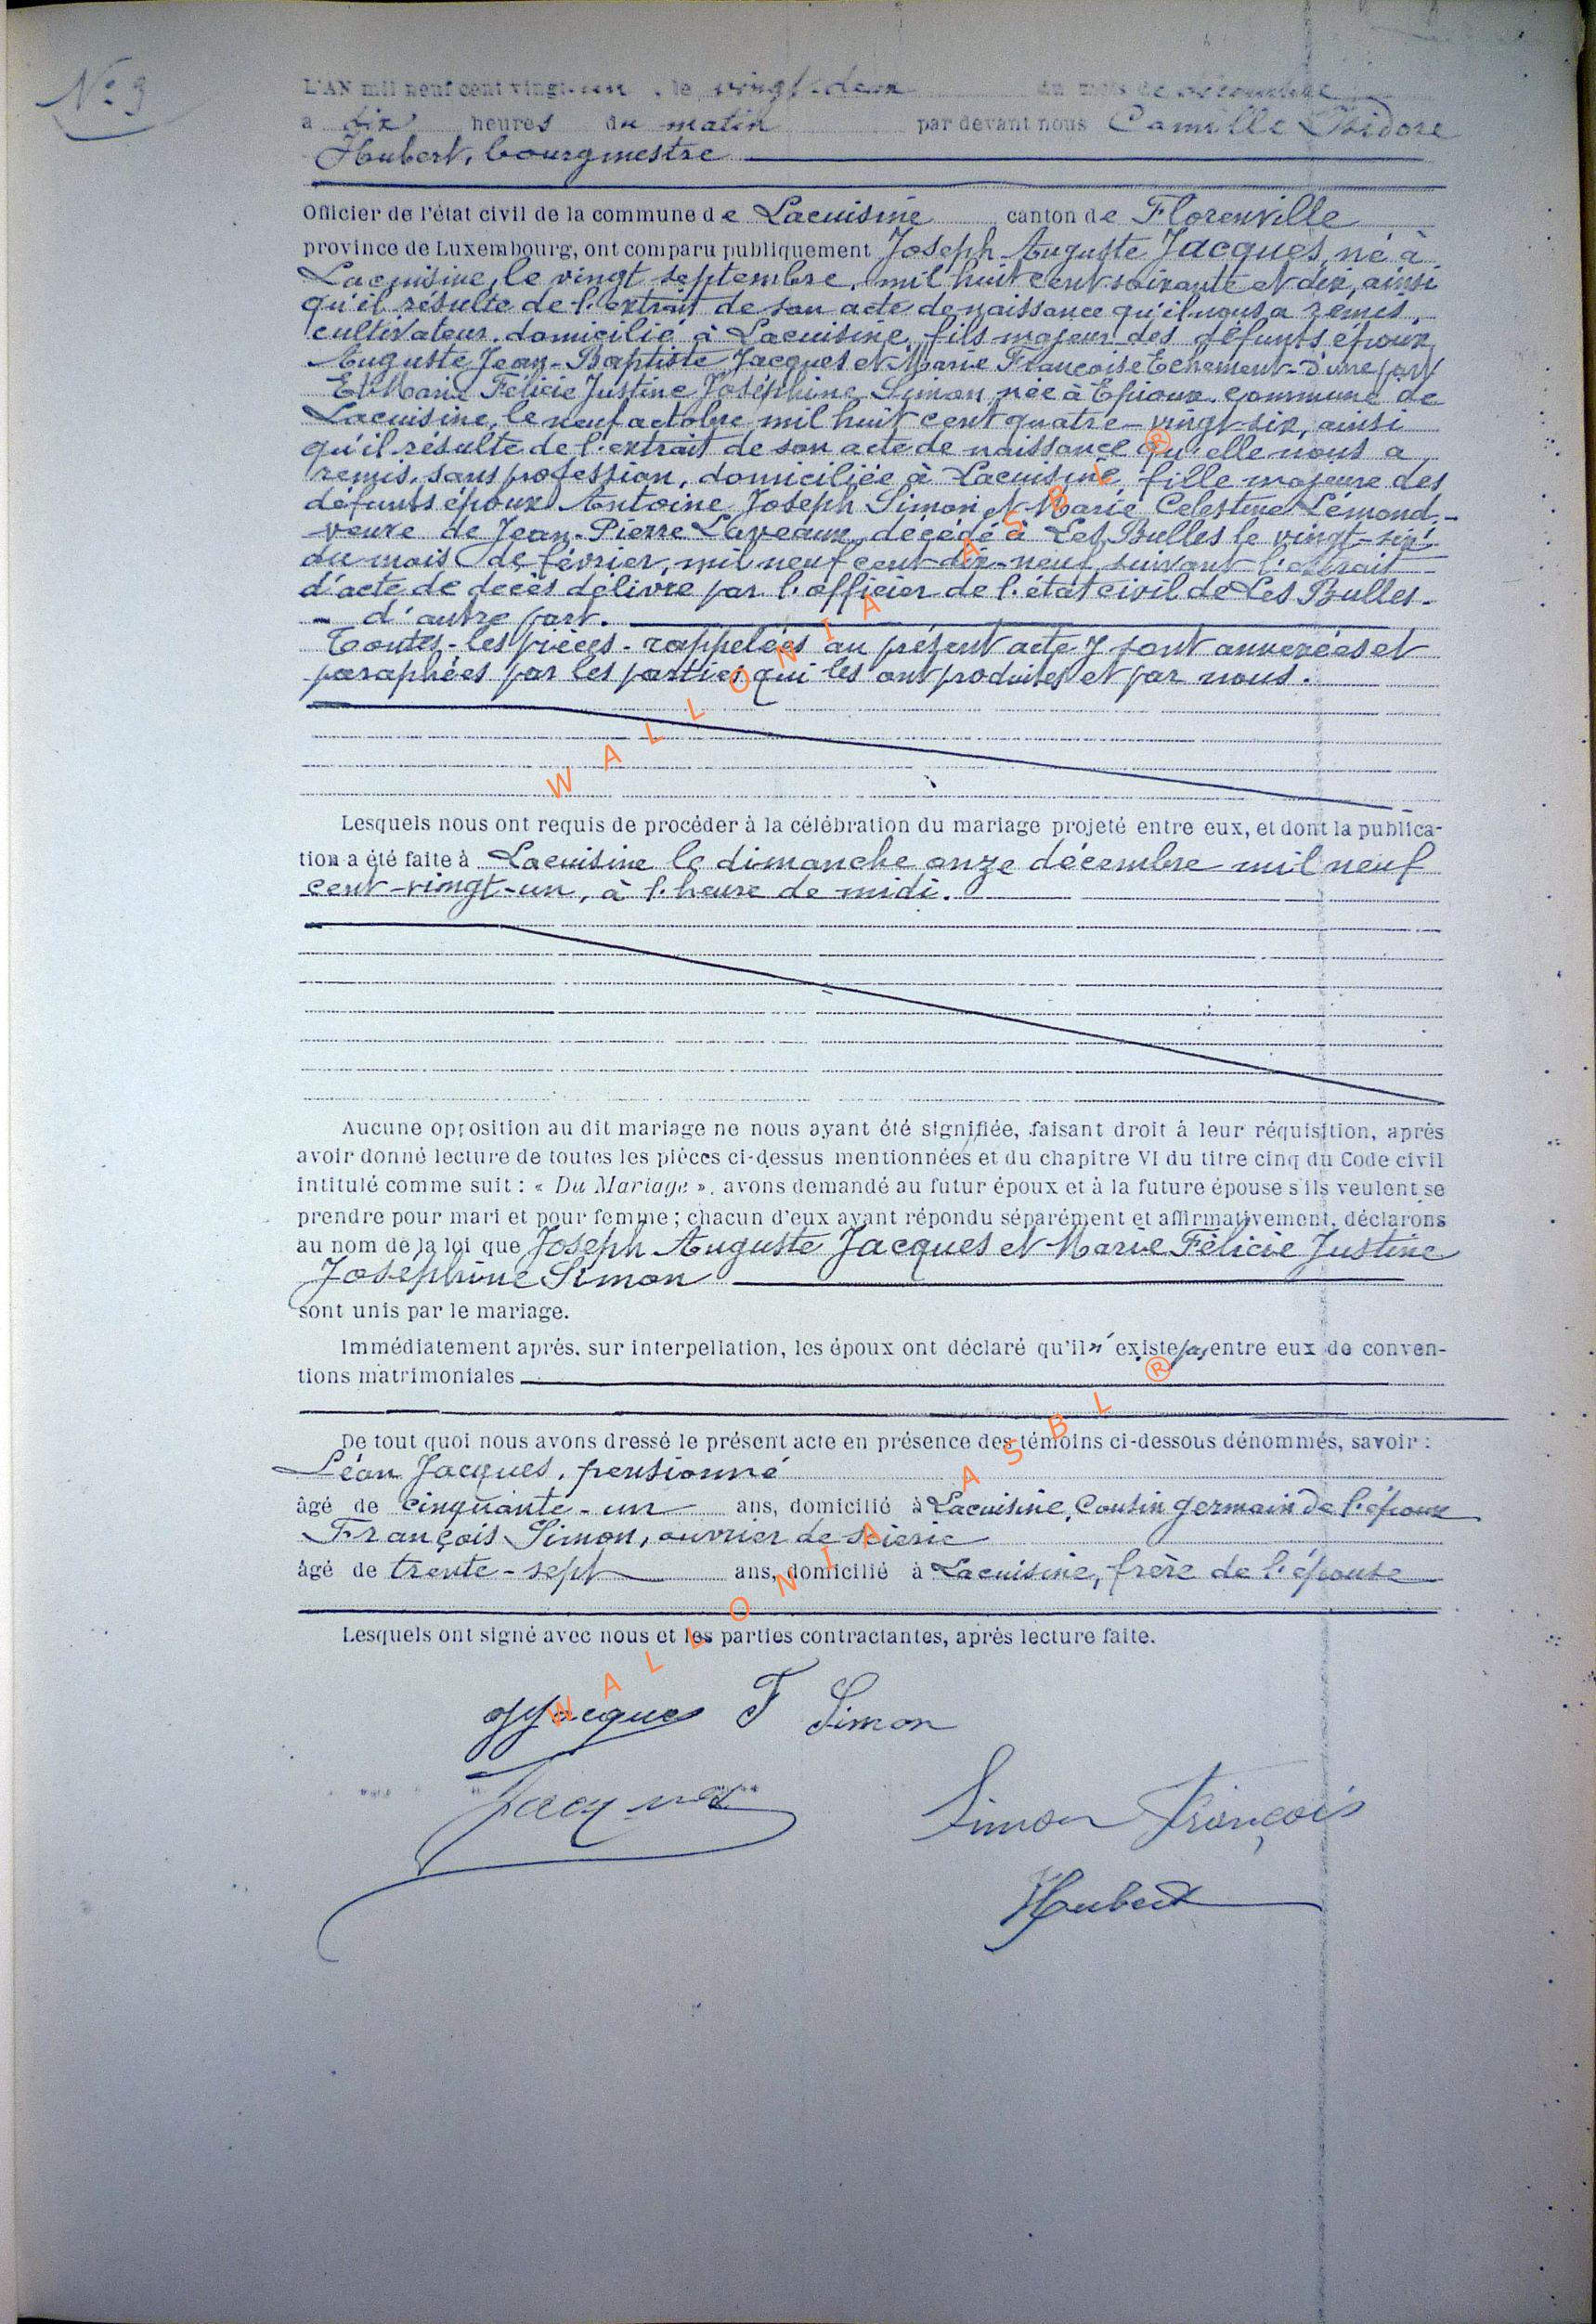 N° 9
L'AN mil neuf cent vingt-un, le vingt-deux du mois de décembre
a dix heures du matin par devant nous Camille Isidore
Hubert, bourgmestre
Officier de l'état civil de la commune de Lacuisine canton de Florenville
province de Luxembourg, ont comparu publiquement Joseph Auguste Jacques, né à
Lacuisine, le vingt septembre, mil huit cent soixante et dix, ainsi
qu'il résulte de l'extrait de son acte de naissance qu'il nous a remis,
cultivateur, domicilié à Lacuisine, fils majeur des défunts époux
Auguste Jean-Baptiste Jacques et Marie Françoise Echement - D'une part
Et Marie Félicie Justine Joséphine Simon, née à Epioux, commune de
Lacuisine, le neuf octobre mil huit cent quatre-vingt-six, ainsi
qu'il résulte de l'extrait de son acte de naissance qu'elle nous a
remis, sans profession, domiciliée à Lacuisine, fille majeure des
défunts époux Antoine Joseph Simon et Marie Celestine Lémond, -
veuve de Jean-Pierre Laveaux, décédé à Les Bulles le vingt-six
du mois de février, mil neuf cent dix-neuf, suivant l'extrait
d'acte de décès délivré par l'officier de l'état civil de Les Bulles.
- d'autre part.
Toutes les pièces rappelées au présent acte y sont annexées et
paraphées par les parties qui les ont produites et par nous.
Lesquels nous ont requis de procéder à la célébration du mariage projeté entre eux, et dont la publica-
tion a été faite à Lacuisine le dimanche onze décembre mil neuf
cent-vingt-un, à l'heure de midi.
Aucune opposition au dit mariage ne nous ayant été signifiée, faisant droit à leur réquisition, après
avoir donné lecture de toutes les pièces ci-dessus mentionnées et du chapitre VI du titre cinq du Code civil
intitulé comme suit : « Du Mariage », avons demandé au futur époux et à la future épouse s'ils veulent se
prendre pour mari et pour femme ; chacun d'eux ayant répondu séparément et affirmativement, déclarons
au nom de la loi que Joseph Auguste Jacques et Marie Félicie Justine
Joséphine Simon
sont unis par le mariage.
Immédiatement après, sur interpellation, les époux ont déclaré qu'il n'existe pas entre eux de conven-
tions matrimoniales
De tout quoi nous avons dressé le présent acte en présence des témoins ci-dessous dénommés, savoir :
Léon Jacques, pensionné
âgé de cinquante-un ans, domicilié à Lacuisine, Cousin germain de l'époux
François Simon, ouvrier de scierie
âgé de trente-sept ans, domicilié à Lacuisine, frère de l'épouse
Lesquels ont signé avec nous et les parties contractantes, après lecture faite.
Jacques F Simon
Jacques
Simon François
Hubert
WALLONIA ASBL ®
WALLONIA ASBL ®